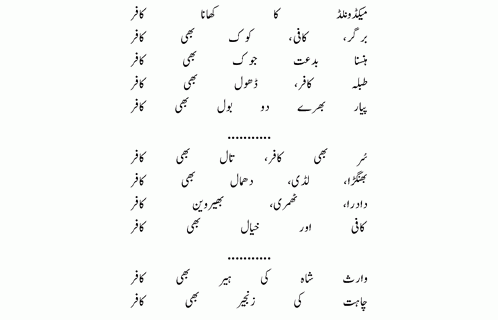 میکڈونلڈ کا کھانا کافر
برگر، کافی، کوک بھی کافر
ہنسنا بدعت جوک بھی کافر
طبلہ کافر، ڈھول بھی کافر
پیار بھرے دو بول بھی کافر
...........
سُر بھی کافر، تال بھی کافر
بھنگڑا، لڈی، دھمال بھی کافر
دادرا، ٹھمری، بھیرویں کافر
کافی اور خیال بھی کافر
...........
وارث شاہ کی ہیر بھی کافر
چاہت کی زنجیر بھی کافر